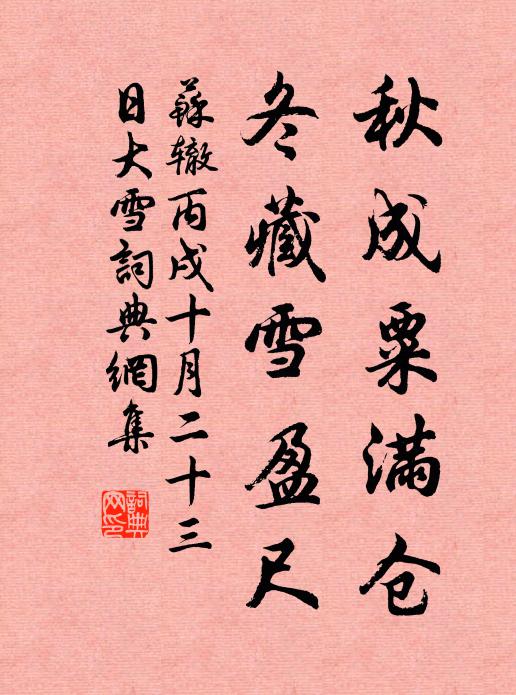 秋成粟满仓
冬藏雪盈尺
蘇辙丙戌十月二十三
日大雪詞典網集
詞典网印